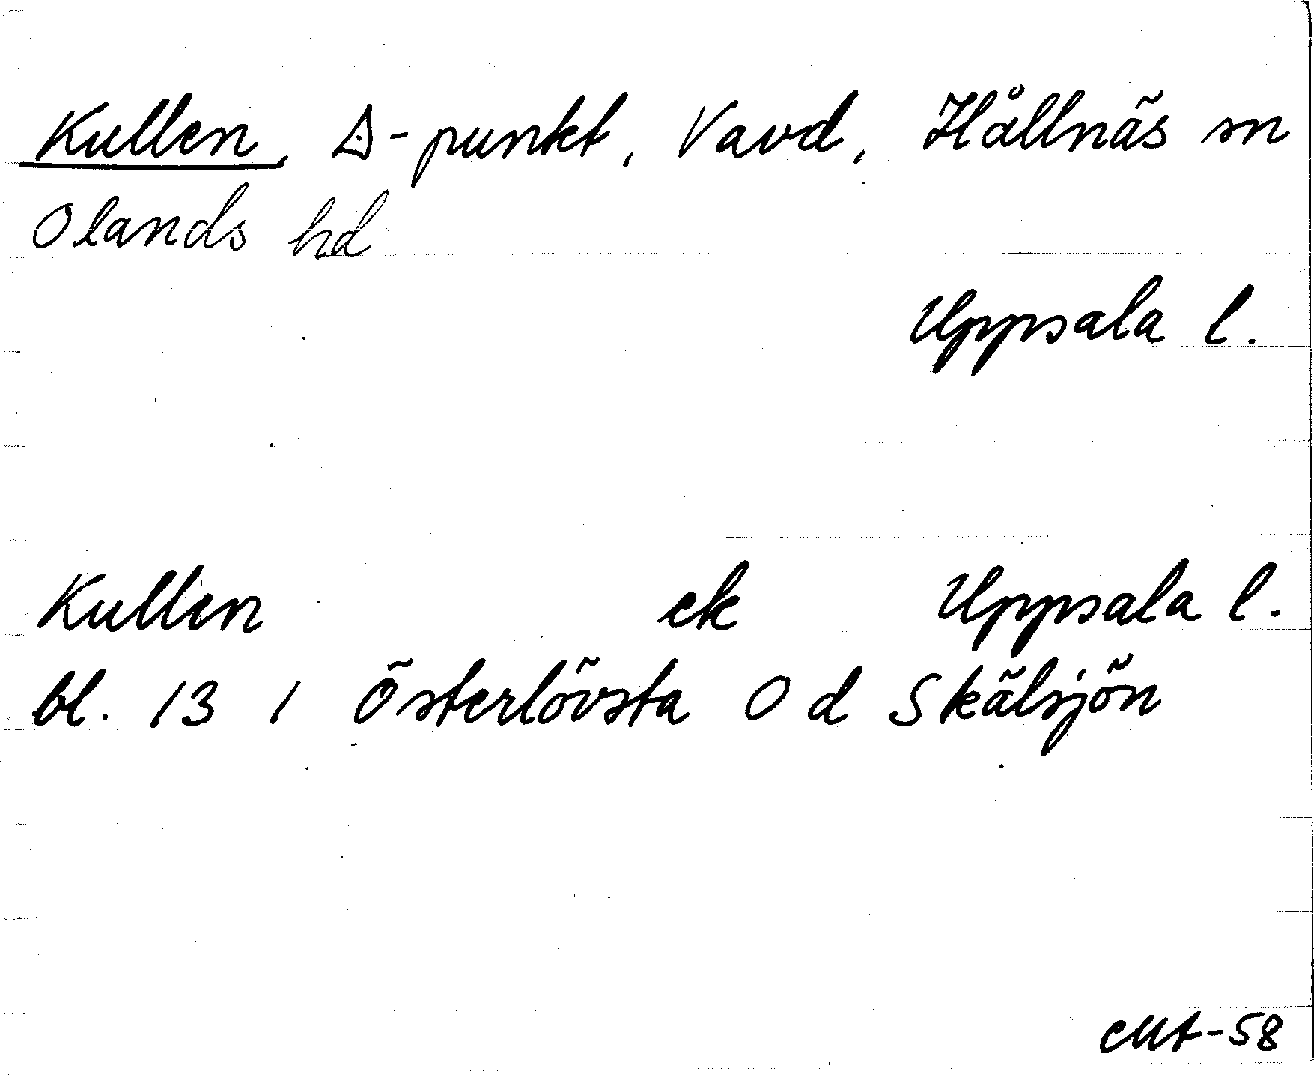 Kullen, △-punkt, Vavd, Hållnäs sn
Olands hd
Uppsala l.
Kullen ek Uppsala l.
bl. 13 1 Österlövsta O d Skälsjön
-58